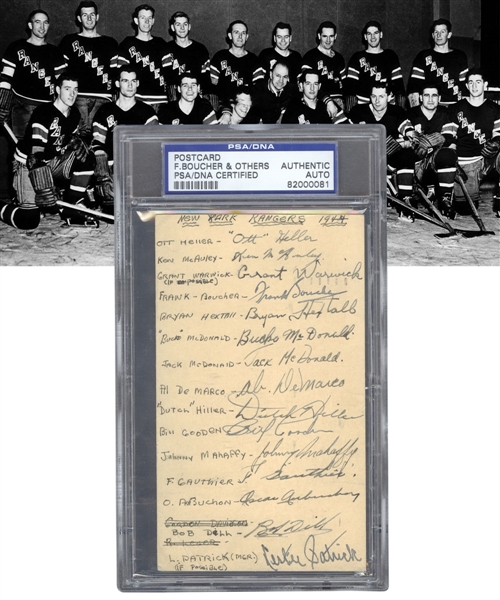 PSA/DNA
POSTCARD
F.BOUCHER & OTHERS AUTHENTIC
PSA/DNA CERTIFIED AUTO
82000081
NEW YORK RANGERS 1944
OTT HELLER - "Ott" Heller
KEN McAULEY - Ken McAuley
GRANT WARWICK - Grant Warwick
(IF POSSIBLE)
FRANK - BOUCHER - Frank Boucher
BRYAN HEXTALL - Bryan Hextall
"BUCKO" McDONALD - Bucko McDonald.
JACK McDONALD - Jack McDonald.
Al DE MARCO - Ab. DeMarco
"DUTCH" HILLER - Dutch Hiller
BILL GOODEN - Bill Gooden
JOHNNY MAHAFFY - Johnny Mahaffy
F GAUTHIER - F. Gauthier
O. AUBUCHON - Oscar Aubuchon
GORDON DAVIDSON
BOB DILL - Bob Dill
L. PATRICK (MGR) Lester Patrick
(IF POSSIBLE)